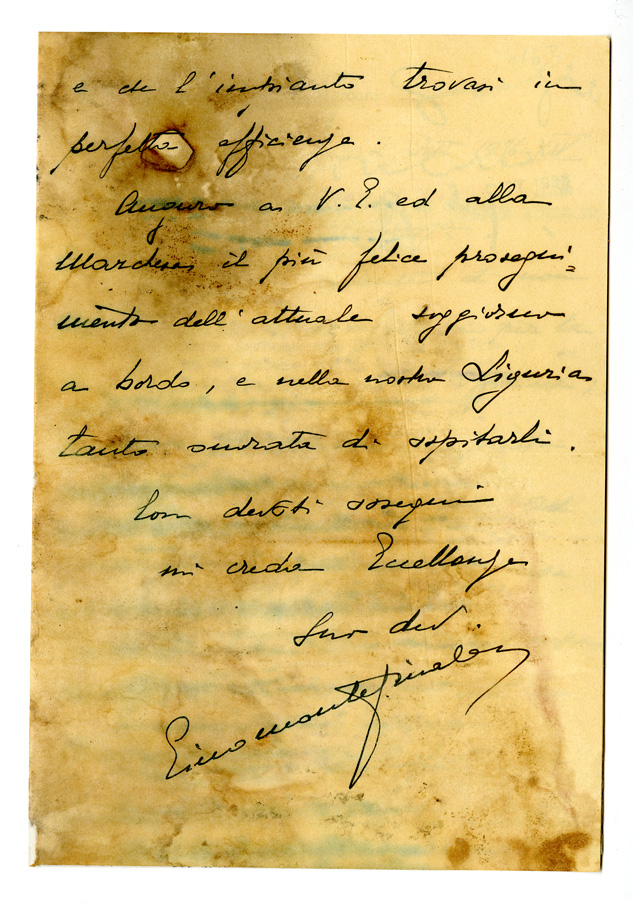 e che l'impianto trovasi in
perfetta efficienza.
Auguro a V. E. ed alla
Marchesa il più felice prosegui=
mento dell'attuale soggiorno
a bordo, e nella nostra Liguria
tanto onorata di ospitarli.
Con devoti ossequi
mi creda Eccellenza
Suo dev.
Gino Montefinale